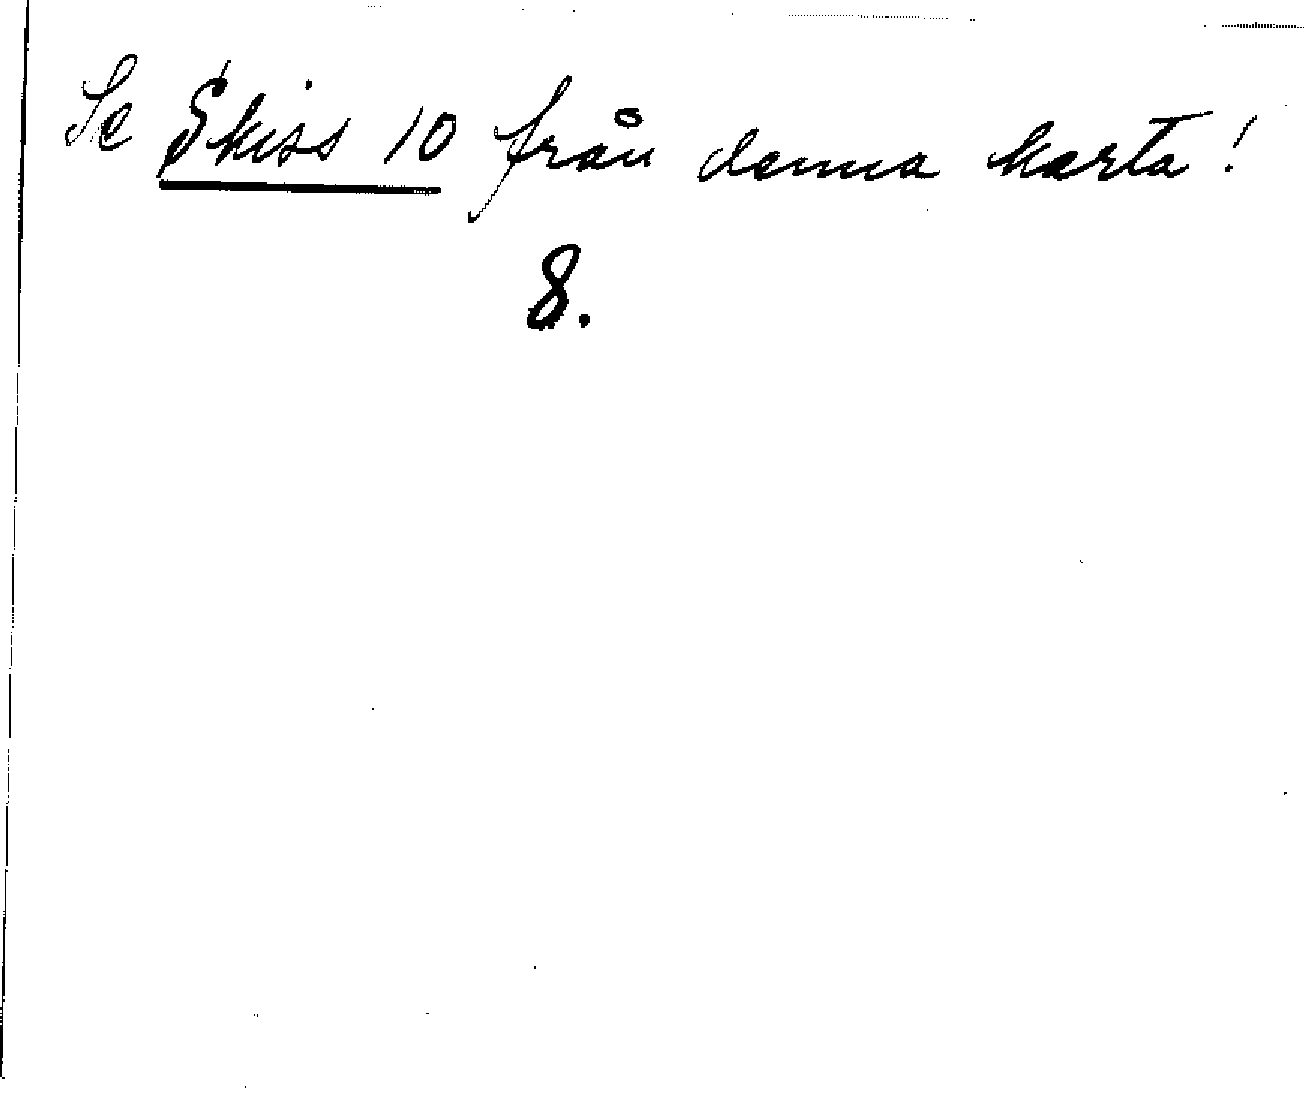 Se Skiss 10 från denna karta!
8.